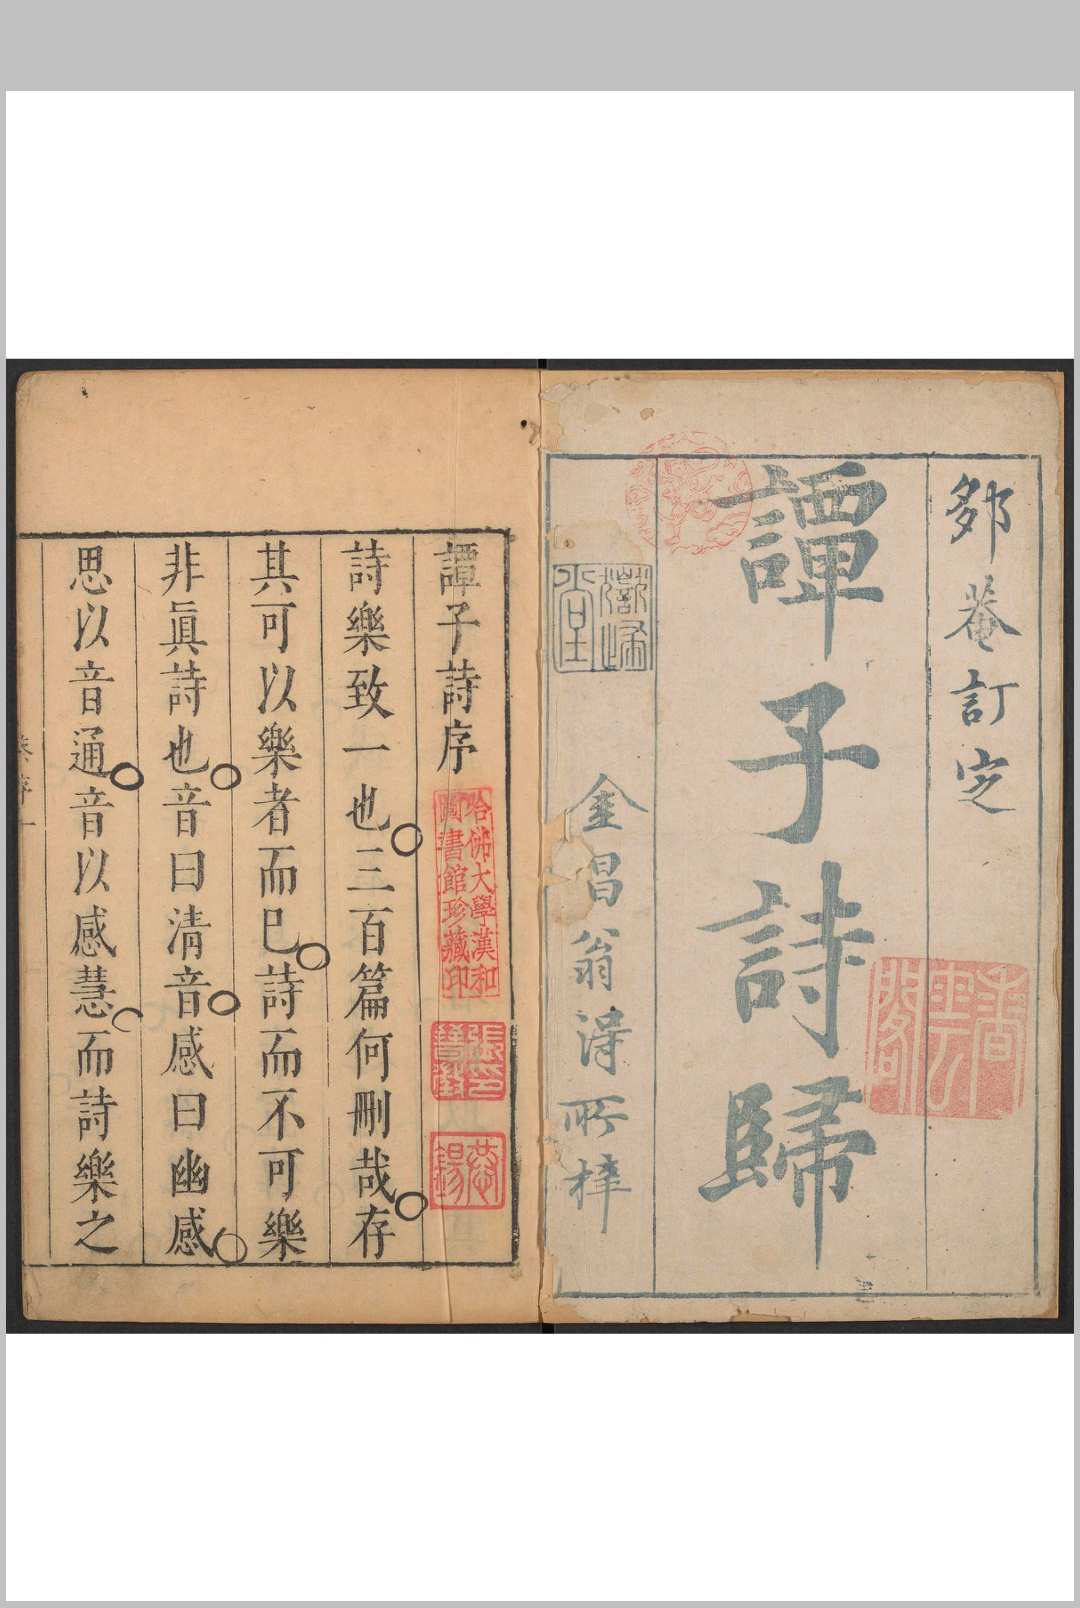 鄒菴訂定
譚子詩歸
嶽歸堂
金昌翁得所梓
香雲閣
譚子詩序
哈佛大學漢和
圖書館珍藏印
詩樂致一也三百篇何刪哉存
其可以樂者而已詩而不可樂
非眞詩也音曰清音感曰幽感
思以音通音以感慧而詩樂之